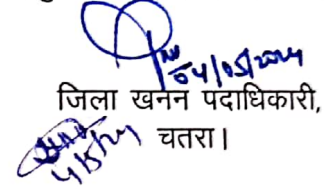 04/05/2024
जिला खनन पदाधिकारी,
चतरा।
4/5/24